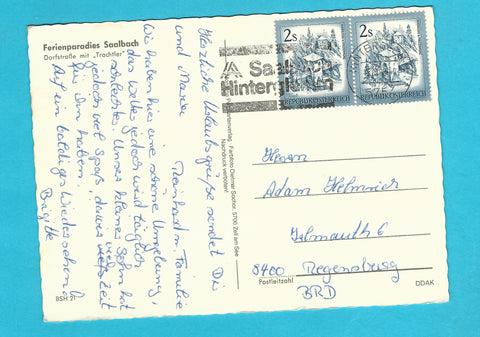 Ferienparadies Saalbach
Dorfstraße mit „Trachtler"
Herzliche Urlaubsgrüße sendet Dir
und Maria Reinhard u. Familie
Wir haben hier eine schöne Umgebung,
das Wetter jedoch wird täglich
schlechter. Unser kleiner Sohn hat
jedoch viel Spaß, da wir viel Zeit
für ihn haben.
Auf ein baldiges Wiedersehen
Brigitte
BSH 21
Farbfoto Dietmar Sochor, 5700 Zell am See
Nachdruck verboten!
Saalbach
Hinterglemm
2s
2s
REPUBLIK ÖSTERREICH
REPUBLIK ÖSTERREICH
Herrn
Adam
8400 Regensburg
Postleitzahl
BRD
DDAK